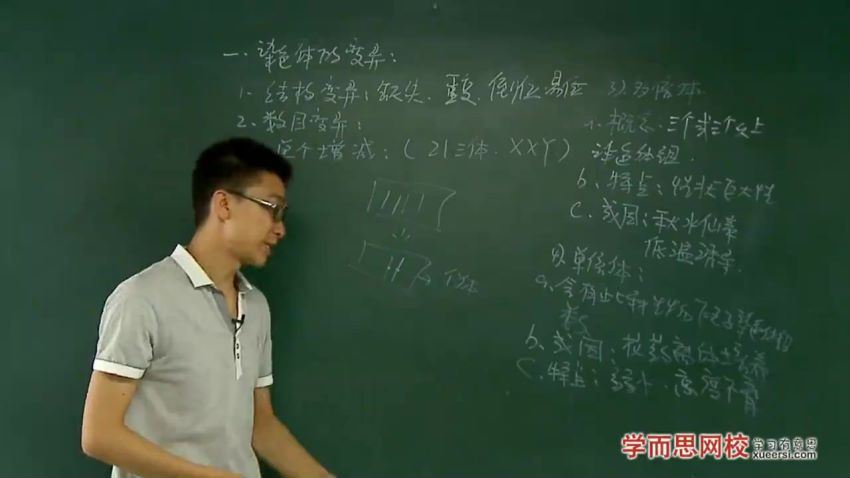 一、染色体的变异：
1. 结构变异：缺失、重复、倒位、易位
2. 数目变异：
个增减：（21三体、XXY）
个体
3). 多倍体
概念：三个或三个以上
染色体组.
b、特点：性状巨大性
c. 成因：秋水仙素
低温诱导.
单倍体：
a.
b. 成因：花药离体培养
c. 特点：弱小.高度不育
学而思网校 学习有意思
xueersi.com